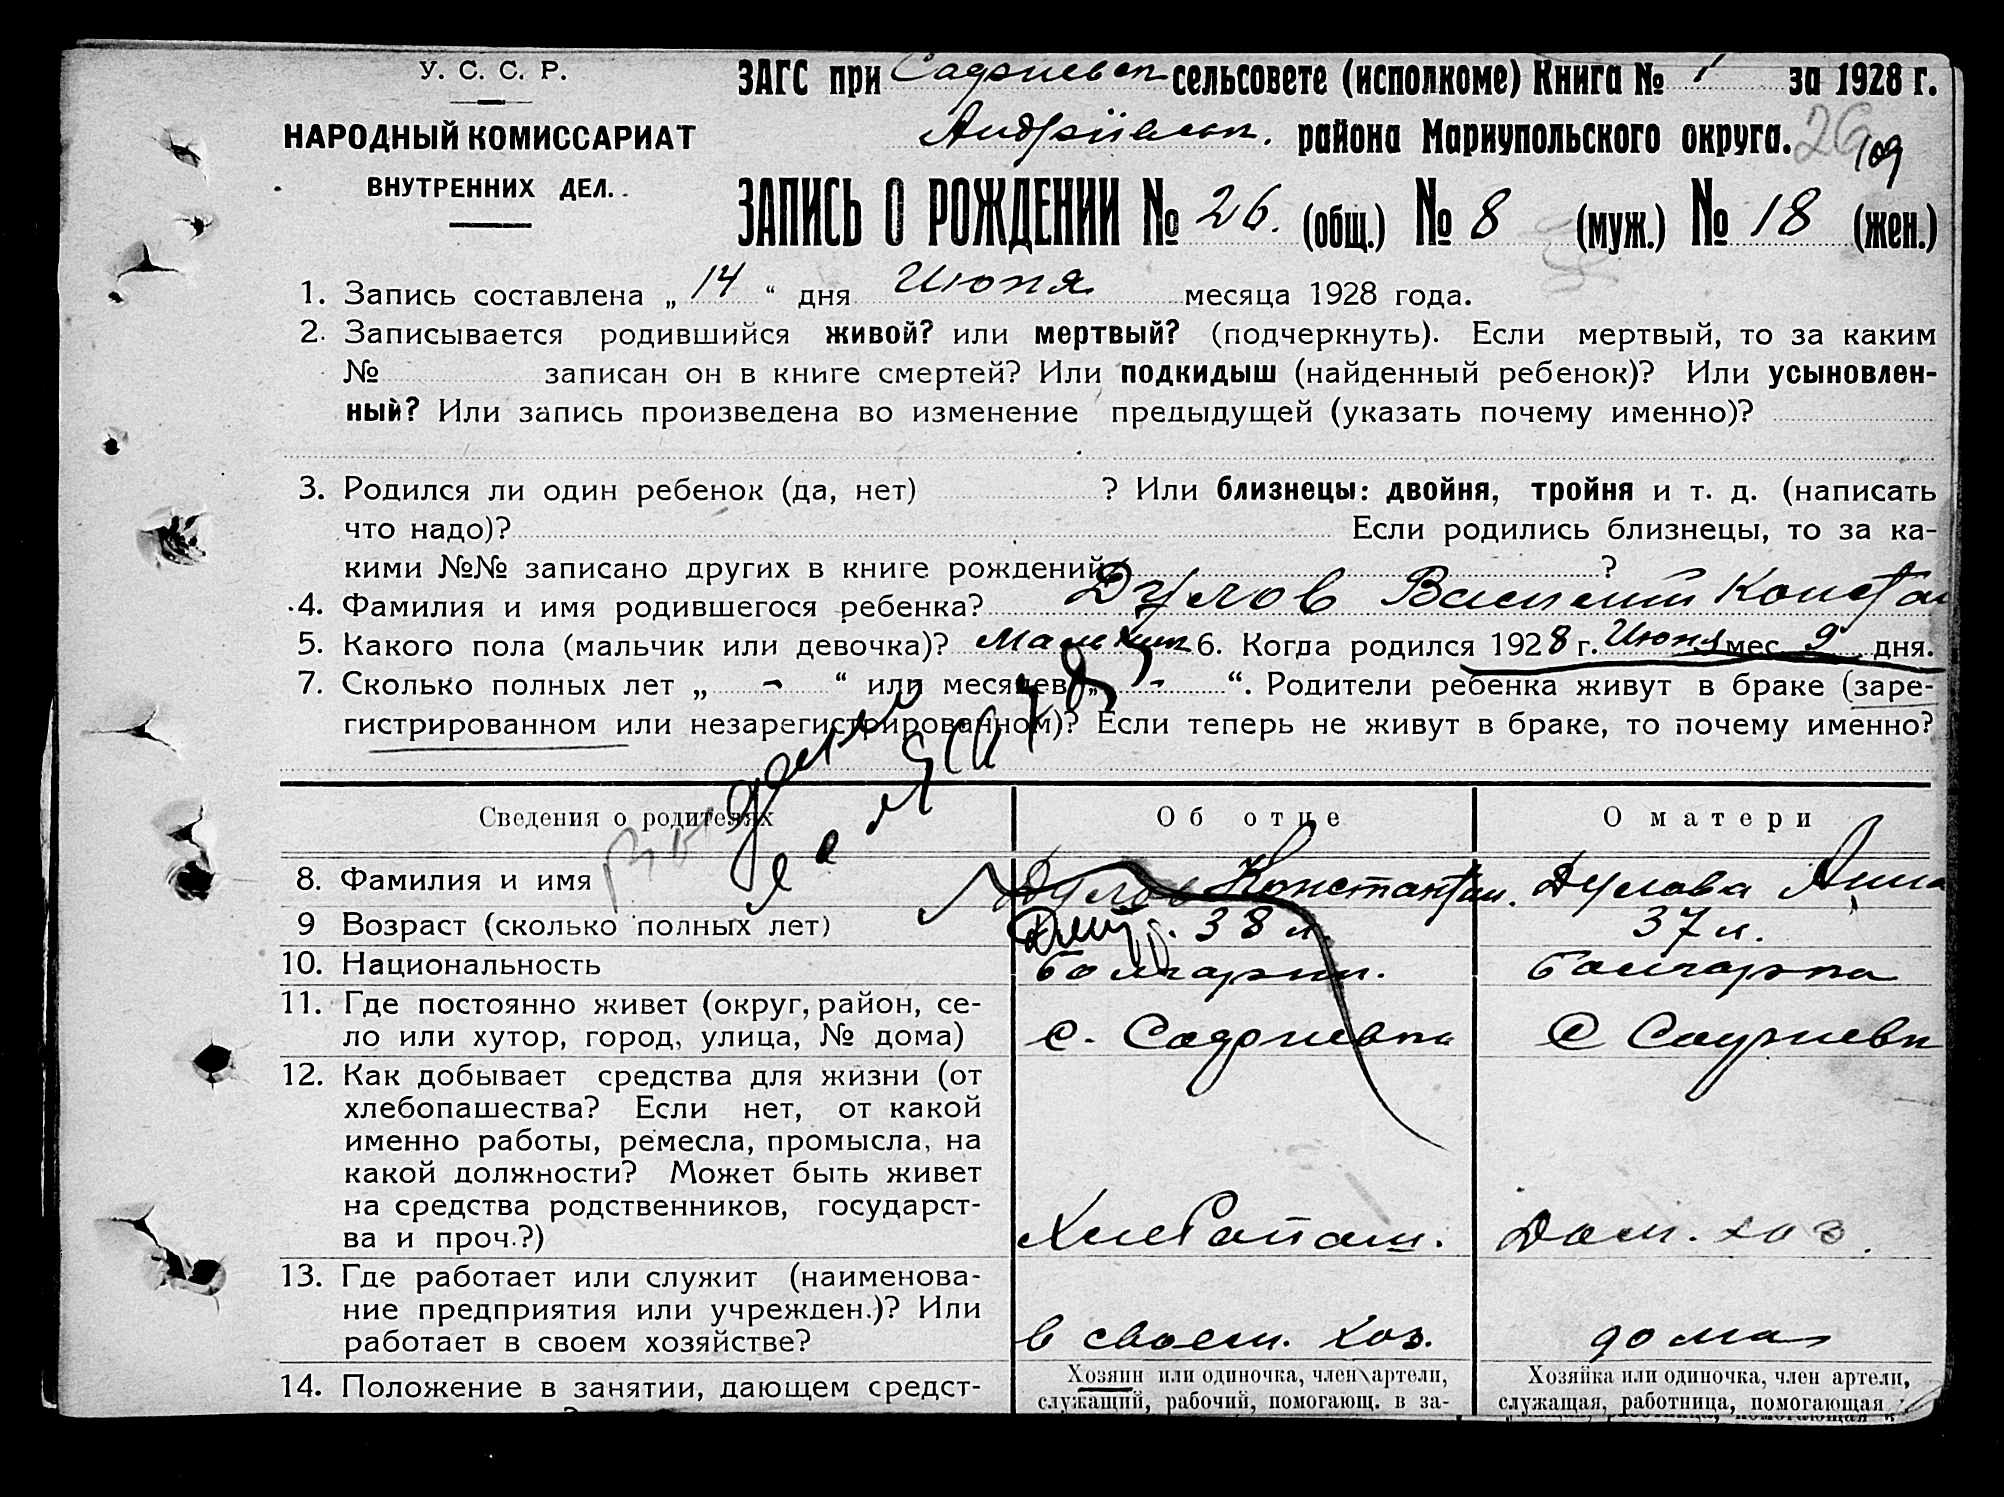 У. С. С. Р.
НАРОДНЫЙ КОМИССАРИАТ
ВНУТРЕННИХ ДЕЛ.
ЗАГС при сельсовете (исполкоме) Книга № 1 за 1928 г.
района Мариупольского округа. 26
ЗАПИСЬ О РОЖДЕНИИ № 26. (общ.) № 8 (муж.) № 18 (жен.)
1. Запись составлена „ 14 “ дня Июня месяца 1928 года.
2. Записывается родившийся живой? или мертвый? (подчеркнуть). Если мертвый, то за каким
№ записан он в книге смертей? Или подкидыш (найденный ребенок)? Или усыновлен-
ный? Или запись произведена во изменение предыдущей (указать почему именно)?
3. Родился ли один ребенок (да, нет) ? Или близнецы: двойня, тройня и т. д. (написать
что надо)? Если родились близнецы, то за ка-
кими №№ записано других в книге рождений ?
4. Фамилия и имя родившегося ребенка? Дулов Василий Констан
5. Какого пола (мальчик или девочка)? 6. Когда родился 1928 г. Июня мес. 9 дня.
7. Сколько полных лет „ - “ или месяцев „ - “. Родители ребенка живут в браке (заре-
гистрированном или незарегистрированном)? Если теперь не живут в браке, то почему именно?
Сведения о родителях
Об отце
О матери
8. Фамилия и имя
Дулов Константин.
Дулова Анна
9 Возраст (сколько полных лет)
38 л.
37 л.
10. Национальность
болгарин.
болгарка
11. Где постоянно живет (округ, район, се-
ло или хутор, город, улица, № дома)
с.
с
12. Как добывает средства для жизни (от
хлебопашества? Если нет, от какой
именно работы, ремесла, промысла, на
какой должности? Может быть живет
на средства родственников, государст-
ва и проч.?)
Хлебопаш.
Дом. хоз.
13. Где работает или служит (наименова-
ние предприятия или учрежден.)? Или
работает в своем хозяйстве?
в своем. хоз.
дома
14. Положение в занятии, дающем средст-
Хозяин или одиночка, член артели,
служащий, рабочий, помогающ. в за-
Хозяйка или одиночка, член артели,
служащая, работница, помогающая